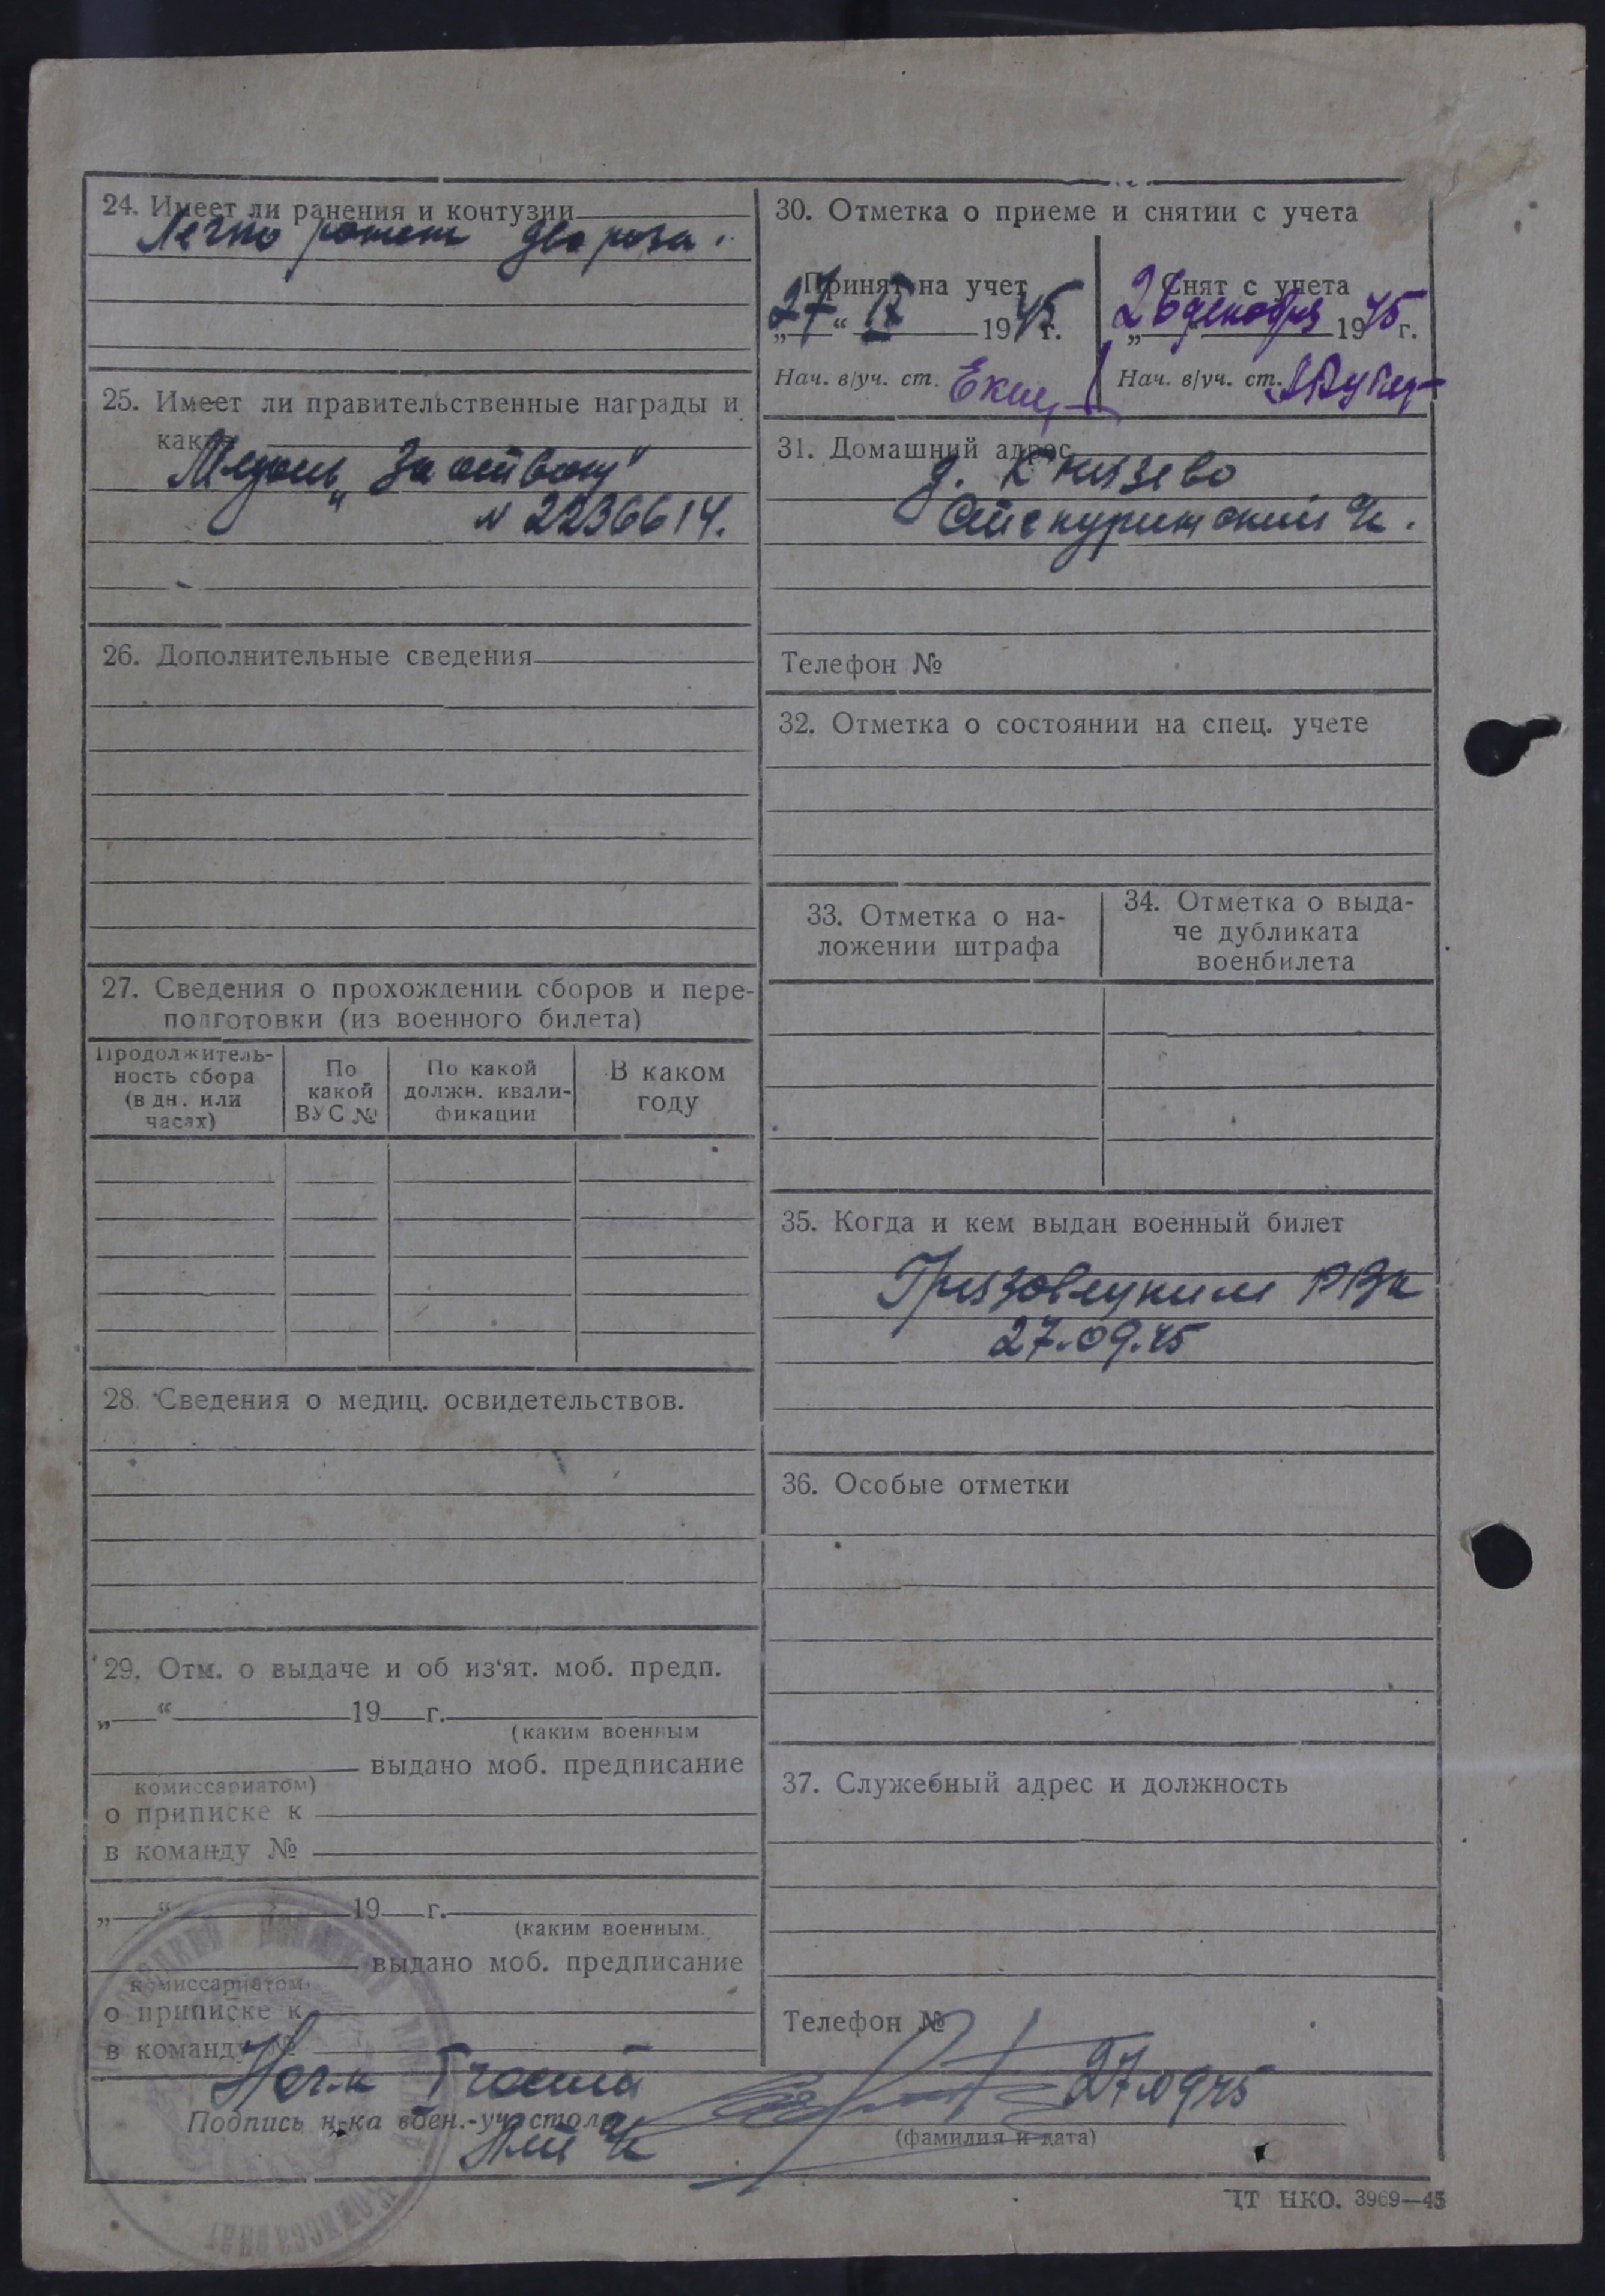 24. Имеет ли ранения и контузии
Легко ранен два раза.
25. Имеет ли правительственные награды и
какие
Медаль „За отвагу"
№ 2236614.
26. Дополнительные сведения
27. Сведения о прохождении сборов и пере-
подготовки (из военного билета)
Продолжитель-
ность сбора
(в дн. или
часах)
По
какой
ВУС №
По какой
должн. квали-
фикации
В каком
году
28. Сведения о медиц. освидетельствов.
29. Отм. о выдаче и об из‘ят. моб. предп.
„ “ 19 г.
(каким военным
выдано моб. предписание
комиссариатом)
о приписке к
в команду №
„ “ 19 г.
(каким военным.
выдано моб. предписание
комиссариатом
о приписке к
в команду №
30. Отметка о приеме и снятии с учета
Принят на учет
„27“ IX 1945 г.
Нач. в/уч. ст.
Снят с учета
„26 декабря 1945 г.
Нач. в/уч. ст.
31. Домашний адрес
д. Князево
с/с
Телефон №
32. Отметка о состоянии на спец. учете
33. Отметка о на-
ложении штрафа
34. Отметка о выда-
че дубликата
военбилета
35. Когда и кем выдан военный билет
Грязовецким РВК
27.09.45
36. Особые отметки
37. Служебный адрес и должность
Телефон №
Нач-к 1 части
Подпись н-ка воен.-уч. стола
27.09.45
(фамилия и дата)
комиссариат
ЦТ НКО. 3969—45